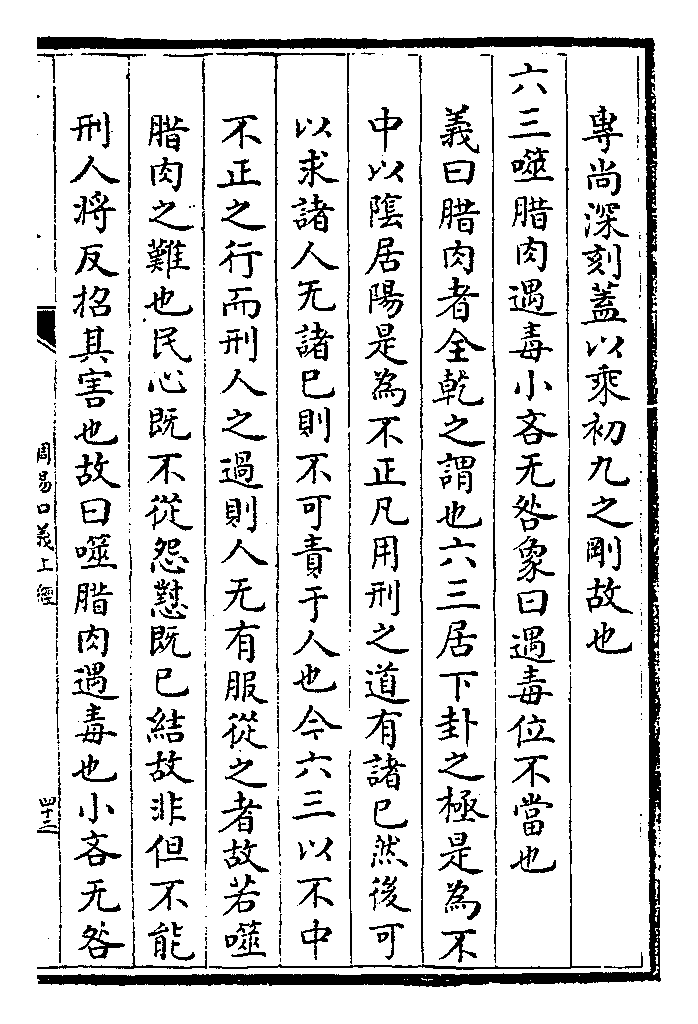 專尚深刻蓋以乘初九之剛故也
六三噬腊肉遇毒小吝无咎象曰遇毒位不當也
義曰腊肉者全乾之謂也六三居下卦之極是為不
中以陰居陽是為不正凡用刑之道有諸已然後可
以求諸人无諸已則不可責于人也今六三以不中
不正之行而刑人之過則人无有服從之者故若噬
腊肉之難也民心既不從怨懟既已結故非但不能
刑人將反招其害也故曰噬腊肉遇毒也小吝无咎
周易口義上經
四十三